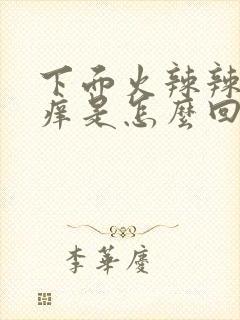 下面火辣辣
痒是怎麼回
李華慶